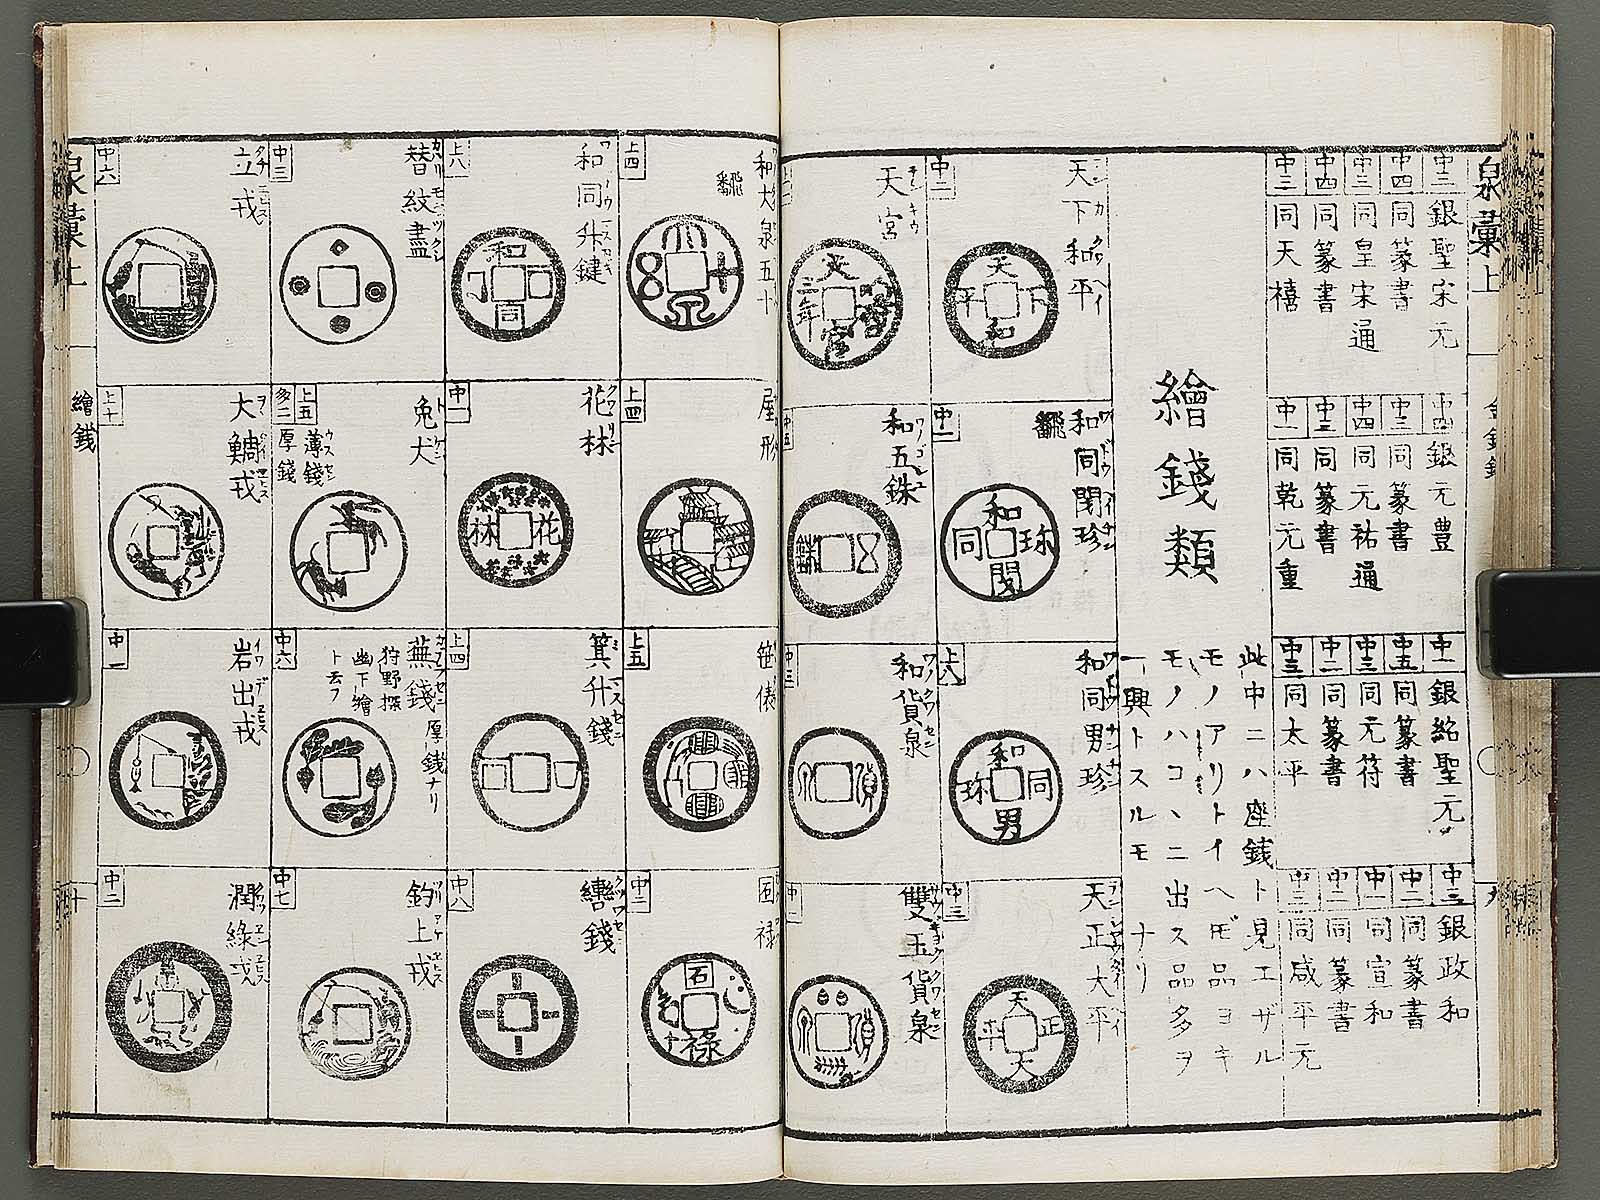 泉彙上
九
中三 銀聖宋元
中四 同篆書
中三 同皇宋通
中四 同篆書
中二 同天禧
中四 銀元豊
中三 同篆書
中四 同元祐通
中三 同篆書
中一 同乾元重
中一 銀紹聖元
中五 同篆書
中三 同元符
中二 同篆書
中三 同太平
中三 銀政和
中二 同篆書
中一 同宣和
中二 同篆書
中三 同咸平元
繪錢類
此中ニハ座銭ト見エザル
モノアリトイヘモ品ヨキ
モノハコヽニ出ス品多ヲ
一興トスルモナリ
中二
天下和平
天下和平
天宮
天宮三年
中一
和同開珍
飜
和同開珍
中五
和五銖
五銖
上八
和同男珍
和同男珍
中三
和貨泉
貨泉
中三
天正大平
天正大平
中一
雙玉貨泉
貨泉
上四
和大泉五十
飜
大泉五十
上八
和同升鍵
和同
中三
替紋盡
中六
立戎
上四
屋形
中一
花林
花林
兔犬
上五 薄錢
多二 厚錢
上十
大鯛戎
上五
笹俵
上四
箕升錢
ミマスセニ
中六
蕪錢
厚銭ナリ
狩野探
幽下繪
ト云フ
中一
岩出戎
イワデエヒス
中二
石禄
石禄
中八
轡錢
クツワセニ
中七
釣上戎
中二
潤緣戎
泉彙上
繪錢
十